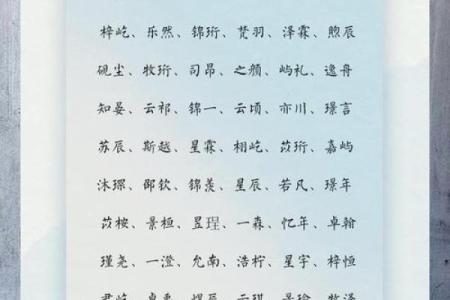 梓屹、乐然、锦珩、梵羽、泽霖、煦辰
砚尘、牧珩、司昂、之颜、屿礼、逸舟
知晏、云祁、锦一、云顷、亦川、璟言
苏辰、斯越、星霖、栩屹、苡珩、嘉屿
沐琛、邵钦、锦羡、星辰、若凡、璟年
苡桉、景桓、昱珵、一森、忆年、卓翰
瑾尧、一澄、允南、浩柠、星宇、梓恒